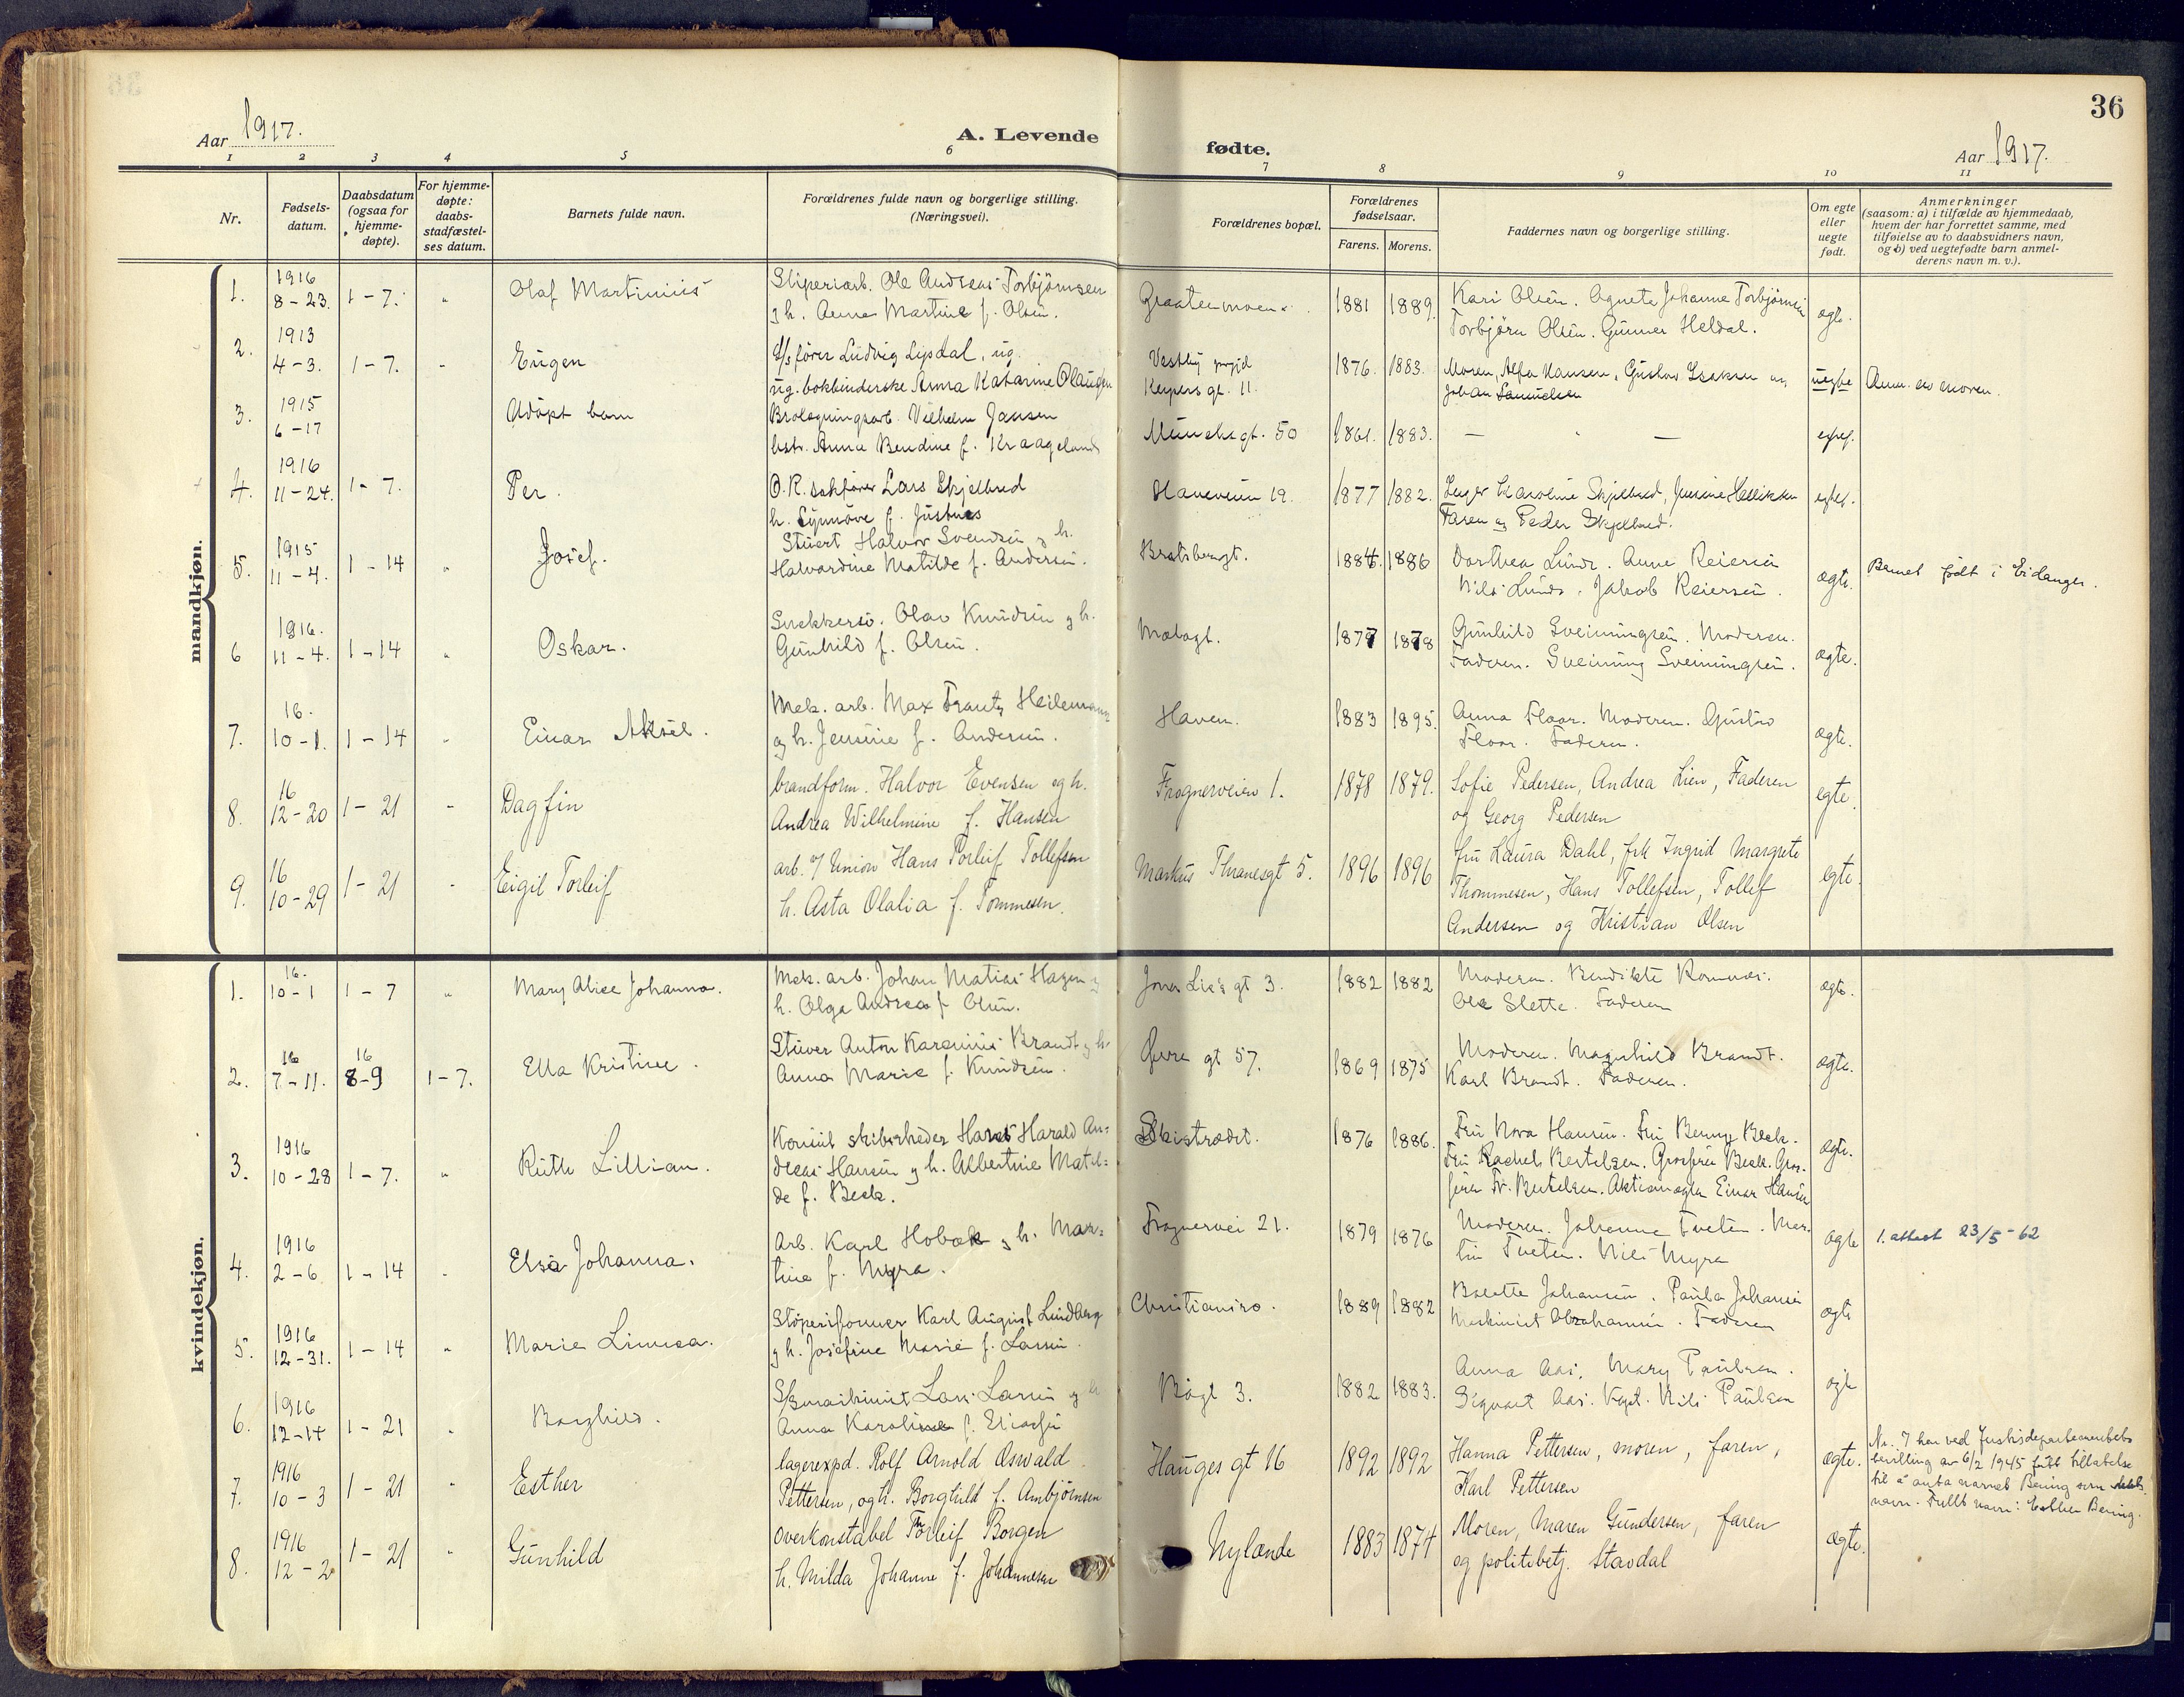 36
Aar 1917.
A. Levende
fødte.
Aar 1917.
1 2 3 4 5 6 7 8 9 10 11
Nr.
Fødsels-
datum.
Daabsdatum
(ogsaa for
hjemme-
døpte).
For hjemme-
døpte:
daabs-
stadfæstel-
ses datum.
Barnets fulde navn.
Forældrenes fulde navn og borgerlige stilling.
(Næringsvei).
Forældrenes bopæl.
Forældrenes
fødselsaar.
Farens. Morens.
Faddernes navn og borgerlige stilling.
Om egte
eller
uegte
født.
Anmerkninger
(saasom: a) i tilfælde av hjemmedaab,
hvem der har forrettet samme, med
tilføielse av to daabsvidners navn,
og b) ved uegtefødte barn anmel-
derens navn m. v.).
mandkjøn.
1. 1916 8-23. 1-7. " Olaf Martinius
Sliperiarb. Ole Andreas Torbjørnsen
g h. Anna Martine f. Olsen.
Graatenmoen. 1881 1889.
Kari Olsen. Agnete Johanne Torbjørnsen
Torbjørn Olsen. Gunnar Heldal.
ægte.
2. 1913 4-3. 1-7. - Eugen
fører Ludvig Lysdal, ug.
ug. bokbinderske Anna Katarine Olausen
Vestby prgjd
Keysers gt. 11.
1876. 1883.
Moren, Alfa Hansen, Gustav Isaksen og
Johan Samuelsen
uegte
Anm. av moren.
3. 1915 6-17
Udøpt barn
Brolægningsarb. Vilhelm Jansen
hstr. Anna Bendine f. Kraageland
Munchsgt. 50 1861. 1883. - - -
egtef.
4. 1916 11-24. 1-7. Per.
O.R. sakfører Lars Skjelbred
h. Synnøve f. Justnes
Haveveien 19. 1877 1882.
Inger Karoline Skjelbred,
Faren og Peder Skjelbred.
egtef.
5. 1915 11-4. 1-14 " Josef.
Stuert Halvor Svendsen g h.
Halvardine Matilde f. Andersen.
Bratsbergt. 1884. 1886
Dorthea Lunde. Anne Reiersen
Nils Lunde. Jakob Reiersen.
ægte.
Barnet født i Eidanger.
6 1916. 11-4. 1-14 " Oskar.
Snekkersv. Olav Knudsen g h.
Gunhild f. Olsen.
Mælagt. 1877 1878
Gunhild Sveinungsen. Moderen.
Faderen. Sveinung Sveinungsen.
ægte.
7. 16. 10-1. 1-14 " Einar Aksel.
Mek. arb. Max Frantz Heilemann
og h. Jensine f. Andersen.
Haven. 1883 1895.
Anna Floor. Moderen. Gustav
Floor. Faderen.
ægte.
8. 16 12-20 1-21 - Dagfin
brandform. Halvor Evensen og h.
Andrea Wilhelmine f. Hansen
Frognerveien 1. 1878 1879.
Sofie Pedersen, Andrea Lien, Faderen
og Georg Pedersen
egte.
9. 16 10-29 1-21 - Eigil Torleif
arb. v/ Union Hans Torleif Tollefsen
h. Asta Olalia f. Tommesen.
Markus Thranesgt 5. 1896 1896
fru Laura Dahl, frk Ingrid Margrete
Thommesen, Hans Tollefsen, Tollef
Andersen og Kristian Olsen
egte.
kvindekjøn.
1. 16. 10-1 1-7 " Mary Alice Johanna.
Mek. arb. Johan Matias Hagen g
h. Olga Andrea f. Olsen.
Jonas Lie's gt 3. 1882 1882
Moderen. Bendikte Romnes.
Ole Slette. Faderen
ægte.
2. 16 7-11. 16 8-9 1-7. Ella Kristine.
Stuver Anton Karenius Brandt g h.
Anna Marie f. Knudsen.
Øvre gt 57. 1869 1875
Moderen. Magnhild Brandt.
Karl Brandt. Faderen.
ægte.
3. 1916 10-28 1-7. " Ruth Lillian.
Konsul skibsrheder Hans Harald An=
dreas Hansen g h. Albertine Matil=
de f. Beck.
Skistrædet. 1876 1886.
Fru Nora Hansen. Fru Benny Beck.
Fru Rachel Bertelsen. Grosserer Beck. Gros-
serer Fr. Bertelsen. Aktiemægler Einar Hansen
ægte.
4. 1916 2-6. 1-14 - Elsa Johanna.
Arb. Karl Hobæk g h. Mar=
tine f. Myra.
Frognervei 21. 1879 1876
Moderen. Johanne Tveten. Mar-
tin Tveten. Nils Myra
ægte
1. attest 23/5-62
5. 1916 12-31. 1-14 " Marie Linnea.
Støperiformer Karl August Lindberg
g h. Josefine Marie f. Larsen.
Christianiro. 1889 1882
Johansen. Paula Johansen
Maskinist Abrahamsen. Faderen
ægte
6. 1916 12-14 1-21 " Borghild.
S/Smaskinist Lars Larsen g h
Anna Karoline f. Eliassen
Bøgt 3. 1882 1883.
Anna Aas. Mary Paulsen.
Sigvart Aas. Kapt. Nils Paulsen
ægte
7. 1916 10-3 1-21 " Esther
lagerexpd. Rolf Arnold Oswald
Pettersen, og h. Borghild f. Ambjørnsen
Hauges gt 16 1892 1892
Hanna Pettersen, moren, faren,
Karl Pettersen
ægte.
Nr. 7 har ved Justisdepartementets
bevilling av 6/2 1945 fått tillatelse
til å anta navnet Bering som slekts-
navn. Fullt navn: Esther Bering.
8. 1916 12-2. 1-21 " Gunhild
Overkonstabel Thorleif Borgen
h. Milda Johanne f. Johannesen
Nylænde 1883 1874
Moren, Maren Gundersen, faren
og politibetj. Stavdal
ægte.